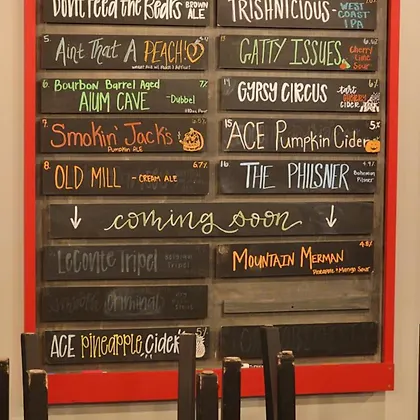 Don't Feed the Bears BROWN ALE
TRISHNICIOUS - WEST COAST IPA
5. Ain't That A PEACH!
GATTY ISSUES Cherry Lime Sour
6. Bourbon Barrel Aged 7%
ALUM CAVE - Dubbel
GYPSY CIRCUS 6%
tart CHERRY CIDER
7. Smokin' Jack's
Pumpkin ALE
15. ACE Pumpkin Cider 5%
8. OLD MILL - CREAM ALE 6.7%
16. THE PHILSNER Bohemian Pilsner
↓ coming soon ↓
LeConte Tripel BELGIAN Tripel
MOUNTAIN MERMAN 4.8%
Pineapple + Mango Sour
Criminal
ACE pineapple Cider 5%